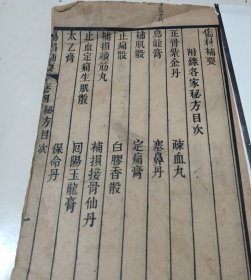 傷科補要
附錄各家秘方目次
正骨紫金丹
疎血丸
烏龍膏
塞鼻丹
補肌散
定痛膏
止痛散
白膠香散
補損續筋丸
補損接骨仙丹
止血定痛生肌散
回陽玉龍膏
太乙膏
保命丹
卷四秘方目次